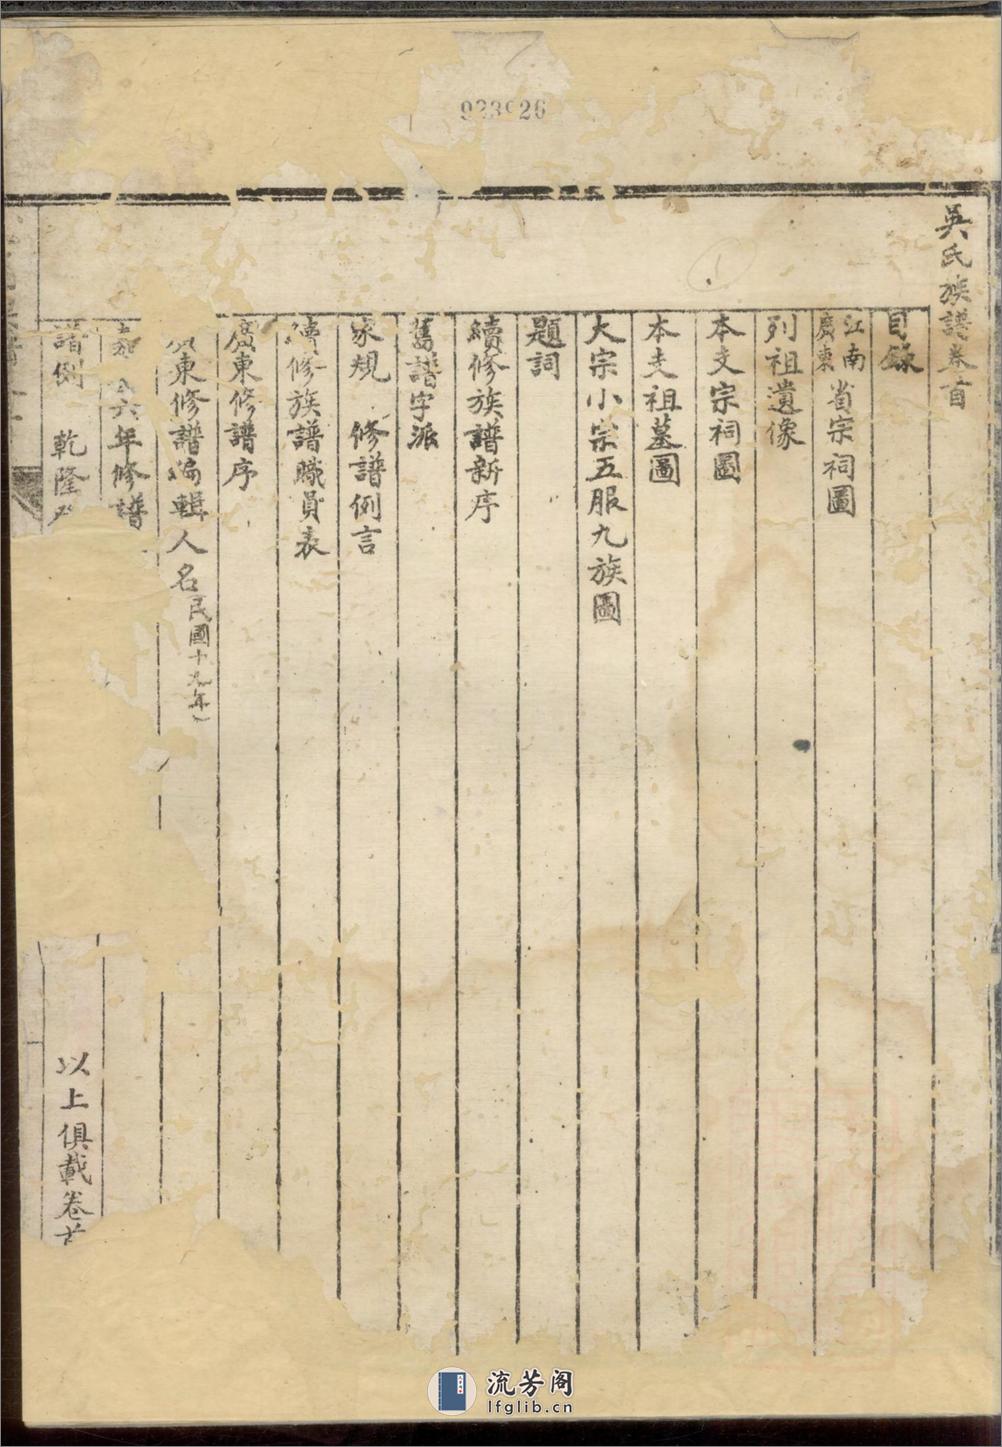 吳氏族譜卷首
目錄
江南
廣東
省宗祠圖
列祖遺像
本支宗祠圖
本支祖墓圖
大宗小宗五服九族圖
題詞
續修族譜新序
舊譜字派
家規 修譜例言
續修族譜職員表
廣東修譜序
東修譜編輯人名民國十九年
六年修譜
譜例 乾隆
以上俱載卷首
流芳阁
lfglib.cn